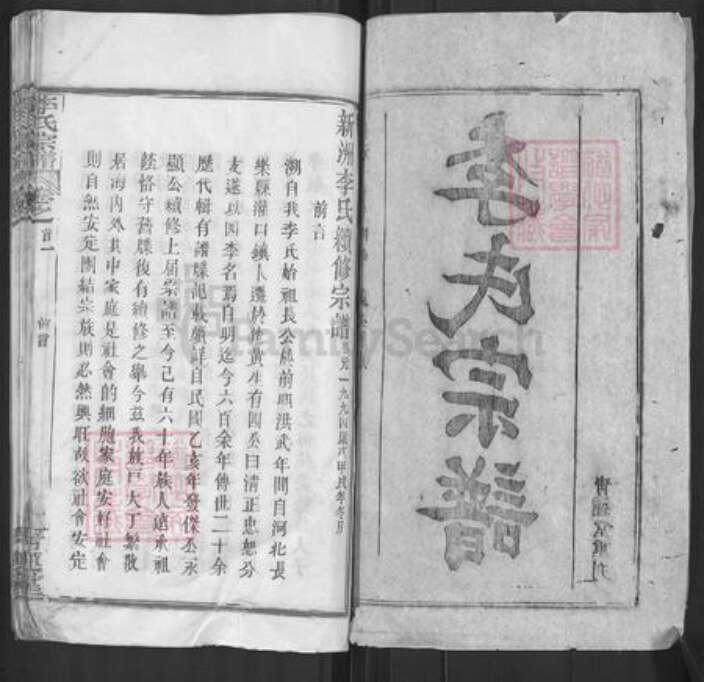 李氏宗譜
新洲李氏續修宗譜
前言
溯自我李氏始祖長公 前明洪武年間自河北長
樂縣灌口鎮卜遷於 黃 生有四丞曰清正忠恕分
支遂以四李名焉自明迄今六百余年傳世二十余
歷代輯有譜牒記載頗詳自民國乙亥年發傑丞承
顯公續修上屆宗譜至今已有六十年族人遠承祖
恪守舊牒復有續修之舉今茲我族戶大丁繁散
居海內外其中家庭是社會的細胞家庭安好社會
則自然安定團結宗族則必然興旺故欲社會安定
李氏宗譜
卷之首一
前言
FamilySearch